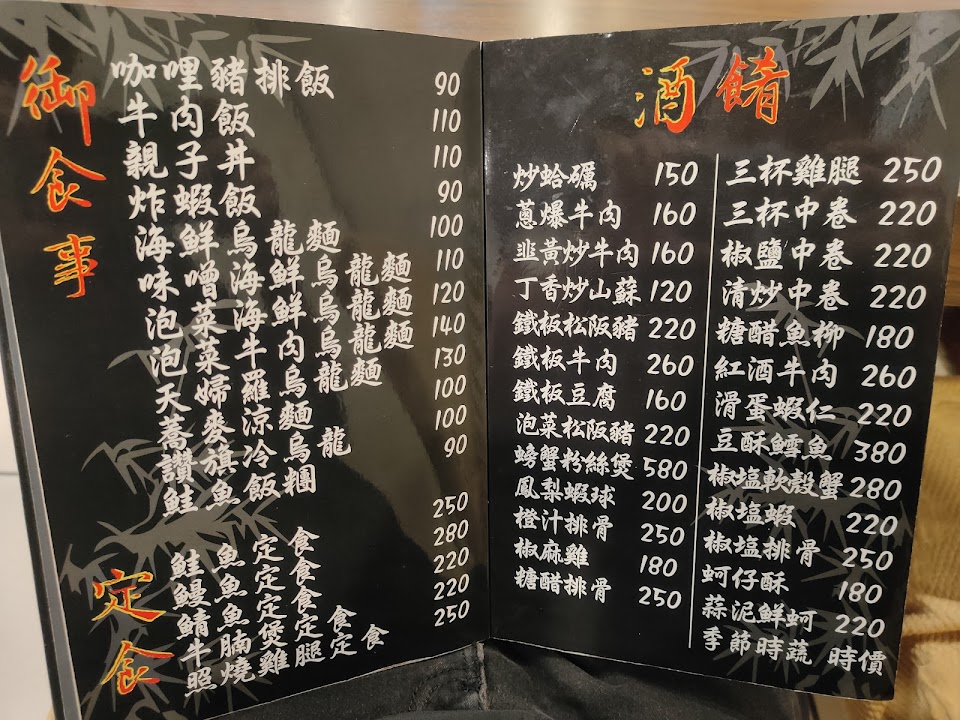 御食事
咖哩豬排飯 90
牛肉飯 110
親子丼 110
炸蝦飯 90
海鮮烏龍麵 100
味噌海鮮烏龍麵 110
泡菜海鮮烏龍麵 120
泡菜牛肉烏龍麵 140
天婦羅烏龍麵 130
蕎麥涼麵 100
讚旗冷烏龍 100
鮭魚飯糰 90
定食
鮭魚定食 250
鰻魚定食 280
鯖魚定食 220
牛腩煲定食 220
照燒雞腿定食 250
酒餚
炒蛤礪 150
蔥爆牛肉 160
韭黃炒牛肉 160
丁香炒山蘇 120
鐵板松阪豬 220
鐵板牛肉 260
鐵板豆腐 160
泡菜松阪豬 220
螃蟹粉絲煲 580
鳳梨蝦球 200
橙汁排骨 250
椒麻雞 180
糖醋排骨 250
三杯雞腿 250
三杯中卷 220
椒鹽中卷 220
清炒中卷 220
糖醋魚柳 180
紅酒牛肉 260
滑蛋蝦仁 220
豆酥鱈魚 380
椒塩軟殼蟹 280
椒塩蝦 220
椒塩排骨 250
蚵仔酥 180
蒜泥鮮蚵 220
季節時蔬 時價